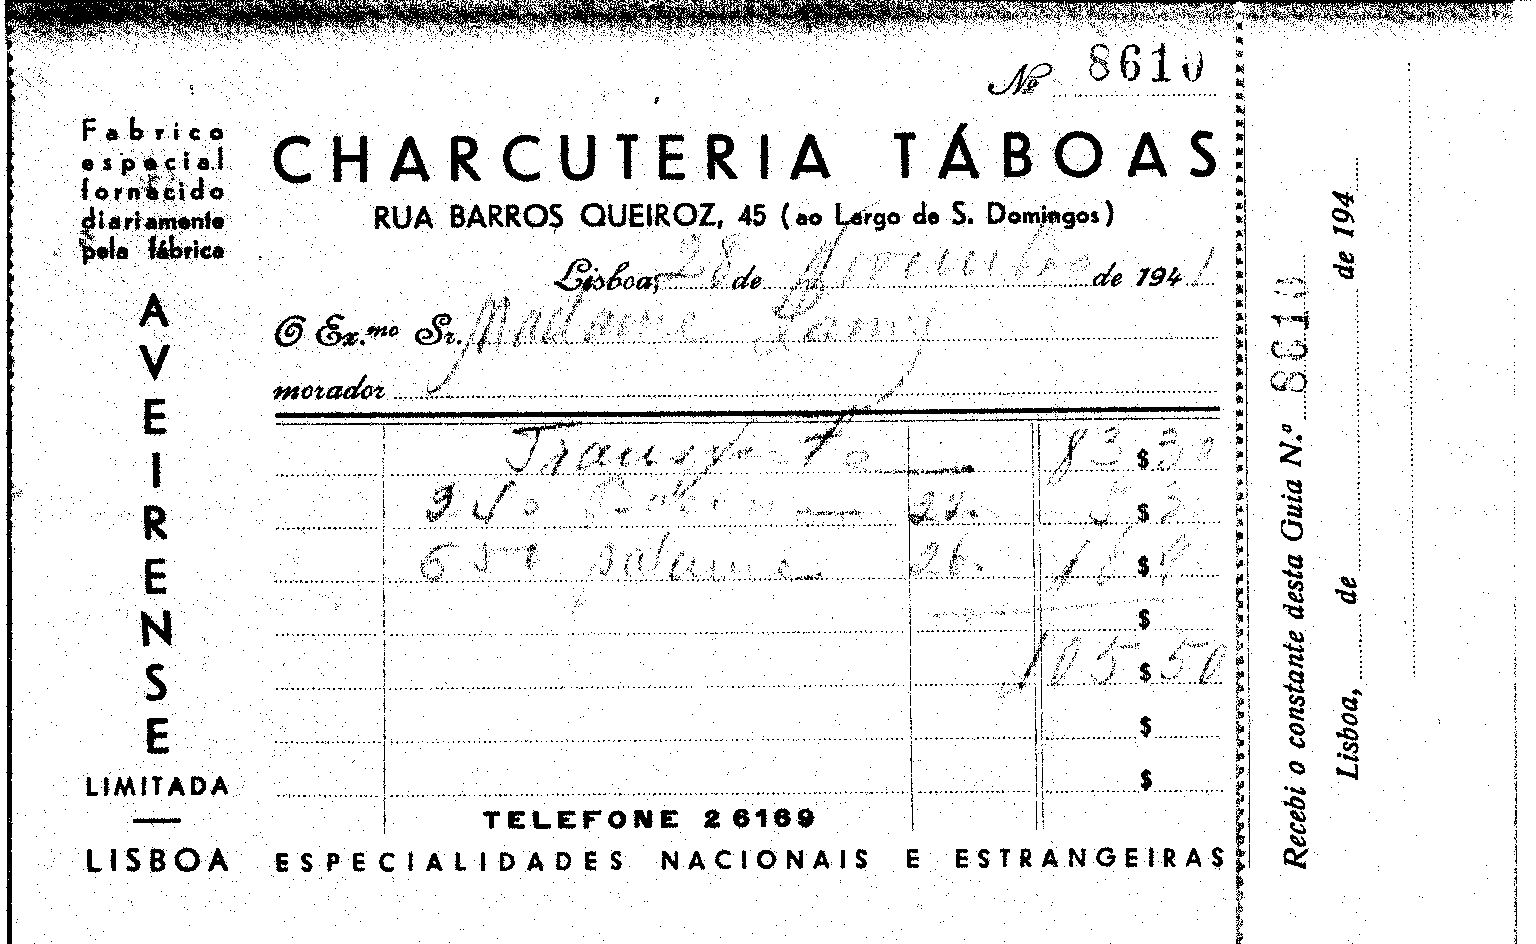 Nº 8610
Fabrico
especial
fornecido
diariamente
pela fábrica
AVEIRENSE
LIMITADA
LISBOA
CHARCUTERIA TÁBOAS
RUA BARROS QUEIROZ, 45 (ao Largo de S. Domingos)
Lisboa, 28 de Novembro de 1941
O Ex.mo Sr. Madame Lamy
morador
Transporte 83$30
28. $
650 26. $
$
105$50
$
$
TELEFONE 26169
ESPECIALIDADES NACIONAIS E ESTRANGEIRAS
Recebi o constante desta Guia N.º 8610
Lisboa, de de 194